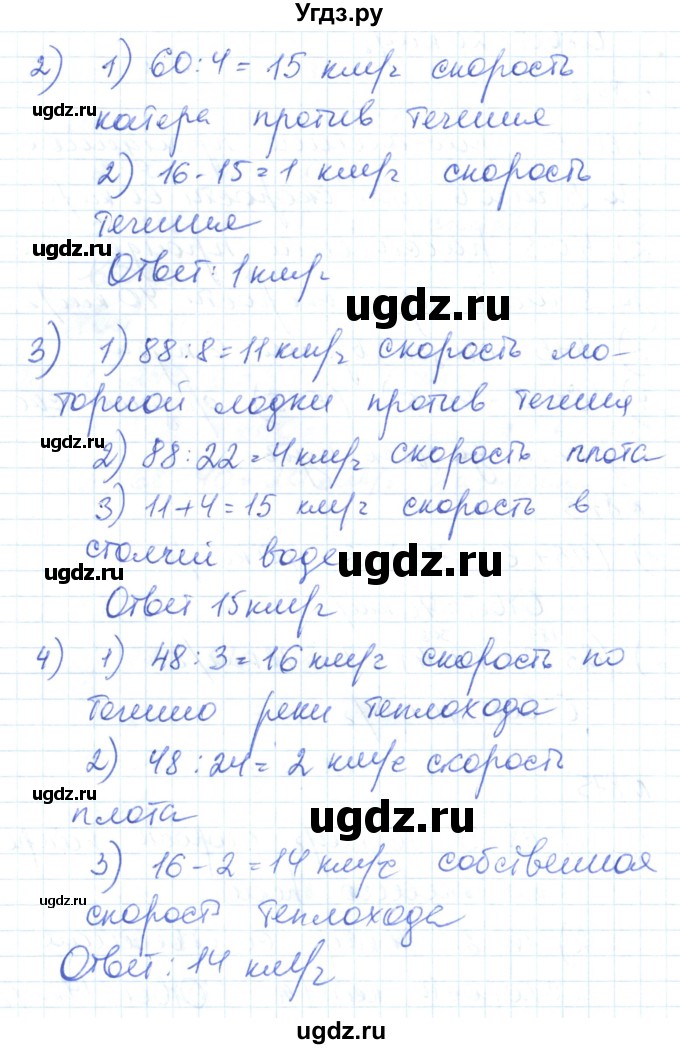 Угдз.ру
2) 1) 60:4 = 15 км/г скорость
ugdz.ru
катера против течения
2) 16-15=1 км/г скорость
течения
ugdz.ru
Ответ: 1км/г
ugdz.ru
3) 1) 88:8=11км/г скорость мо-
торной лодки против течения
ugdz.ru
2) 88:22=4км/г скорость плота
3) 11+4=15 км/г скорость в
стоячей воде
ugdz.ru
ugdz.ru
Ответ 15км/г
4) 1) 48:3=16км/г скорость по
течению реки теплохода
2) 48:24= 2 км/с скорость
ugdz.ru
плота
ugdz.ru
3) 16-2=14км/с собственная
ugdz.ru
скорость теплохода
Ответ: 14 км/г
ugdz.ru